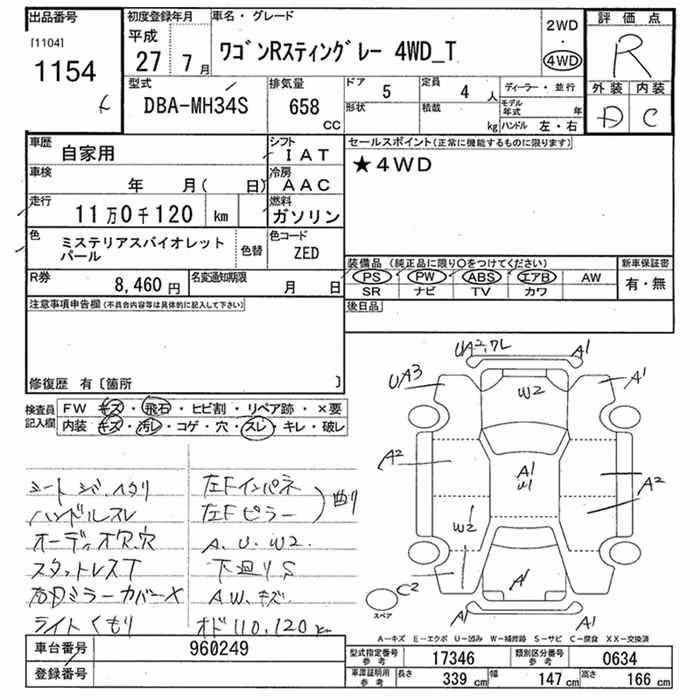 出品番号
[1104]
1154
初度登録年月
平成
27年 7月
車名・グレード
ワゴンRスティングレー 4WD_T
2WD
・
4WD
評価点
R
外装 内装
D C
型式
DBA-MH34S
排気量
658 CC
ドア 5
形状
定員 4 人
積載 kg
ディーラー・並行
モデル年式 年
ハンドル 左・右
車歴
自家用
シフト
IAT
車検
年 月( 日)
冷房
AAC
走行
11万0千120 km
燃料
ガソリン
色
ミステリアスバイオレット
パール
色替
色コード
ZED
R券
8,460円
名変通知期限
月 日
セールスポイント(正常に機能するものに限ります)
★4WD
装備品(純正品に限り○をつけてください)
PS PW ABS エアB AW
SR ナビ TV カワ
新車保証書
有・無
後日品
注意事項申告欄(不具合内容等は具体的に記入して下さい)
修復歴 有〔箇所 〕
検査員
記入欄
FW キズ・飛石・ヒビ割・リペア跡・×要
内装 キズ・汚レ・コゲ・穴・スレ・キレ・破レ
ハンドルスレ
オーディオ穴.穴
スタットレスT
右Dミラーカバー×
ライトくもり
左Fインパネ
左Fピラー
曲り
A.U.W2.
下廻りS
A.W.キズ
オド110,120
UA2,ワレ
A1
UA3
A1
W2
A2
A1
W1
A2
W2
C2
A1
A1
A1
スペア
A―キズ E―エクボ U―凹み W―補修跡 S―サビ C―腐食 XX―交換済
車台番号
960249
登録番号
型式指定番号
参考
17346
類別区分番号
参考
0634
車庫証明用
参考
長さ 339 cm 幅 147 cm 高さ 166 cm